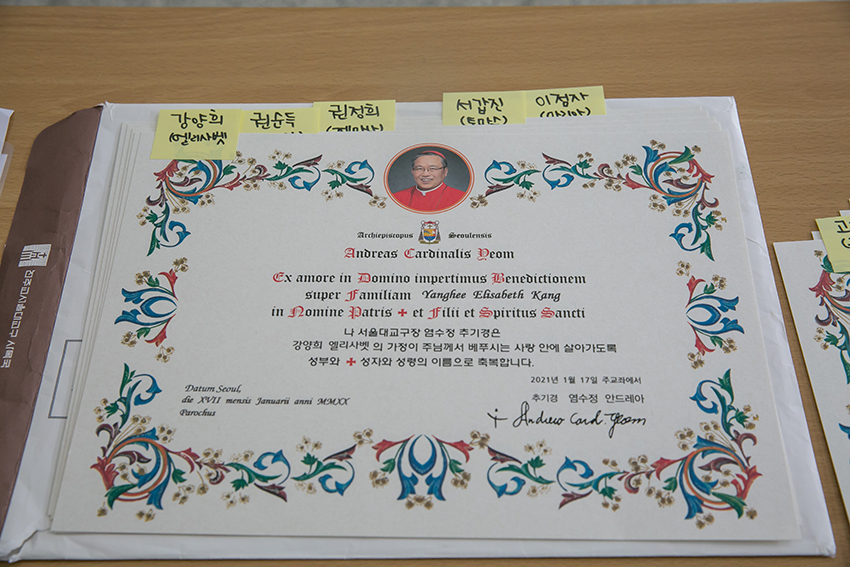 강양희
(엘리사벳
권순득
권정희
(제마나)
서갑진
(토마스)
이점자
(마리아)
Archiepiscopus Seoulensis
Andreas Cardinalis Yeom
Ex amore in Domino impertimus Benedictionem
super Familiam Yanghee Elisabeth Kang
in Nomine Patris + et Filii et Spiritus Sancti
나 서울대교구장 염수정 추기경은
강양희 엘리사벳 의 가정이 주님께서 베푸시는 사랑 안에 살아가도록
성부와 + 성자와 성령의 이름으로 축복합니다.
Datum Seoul,
die XVII mensis Januarii anni MMXX
Parochus
2021년 1월 17일 주교좌에서
추기경 염수정 안드레아
+ Andrew Card. Yeom